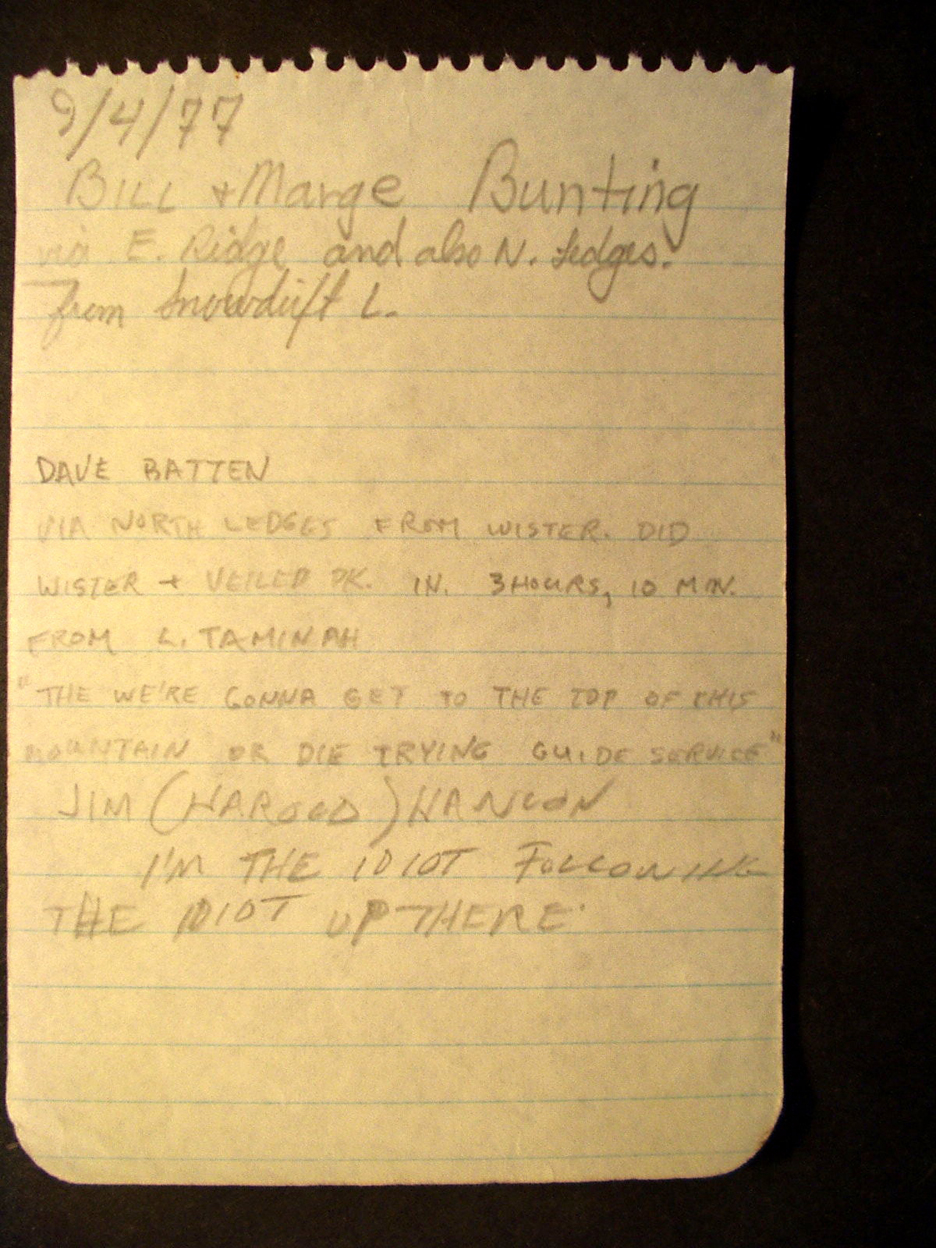 9/4/77
BILL + Marge Bunting
via E. Ridge and also N. Ledges.
from Snowdrift L.
DAVE BATTEN
VIA NORTH LEDGES FROM WISTER. DID
WISTER + VEILED PK. IN. 3 HOURS, 10 MIN.
FROM L. TAMINAH
"THE WE'RE GONNA GET TO THE TOP OF THIS
MOUNTAIN OR DIE TRYING GUIDE SERVICE"
JIM (HAROLD) HANLON
I'M THE IDIOT FOLLOWING
THE IDIOT UP THERE.